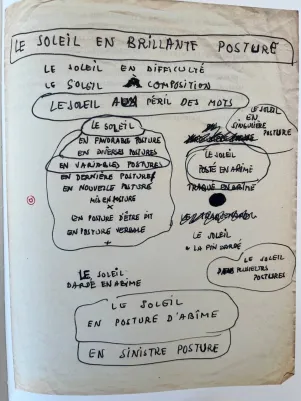 LE SOLEIL EN BRILLANTE POSTURE
LE SOLEIL EN DIFFICULTÉ
LE SOLEIL A COMPOSITION
LE SOLEIL AUX PÉRIL DES MOTS
LE SOLEIL
EN FAVORABLE POSTURE
EN DIVERSES POSTURES
EN VARIABLES POSTURES
EN DERNIÈRE POSTURE
EN NOUVELLE POSTURE
MIS EN POSTURE
EN POSTURE D'ÊTRE DIT
EN POSTURE VERBALE
LE SOLEIL
EN
SINGULIÈRE
POSTURE
LE SOLEIL
POSTÉ EN ABÎME
TRAQUÉ EN ABÎME
LE SOLEIL
LA PIN DARDÉ
LE SOLEIL
PLUSIEURS
POSTURES
LE SOLEIL
DARDÉ EN ABÎME
LE SOLEIL
EN POSTURE D'ABÎME
EN SINISTRE POSTURE